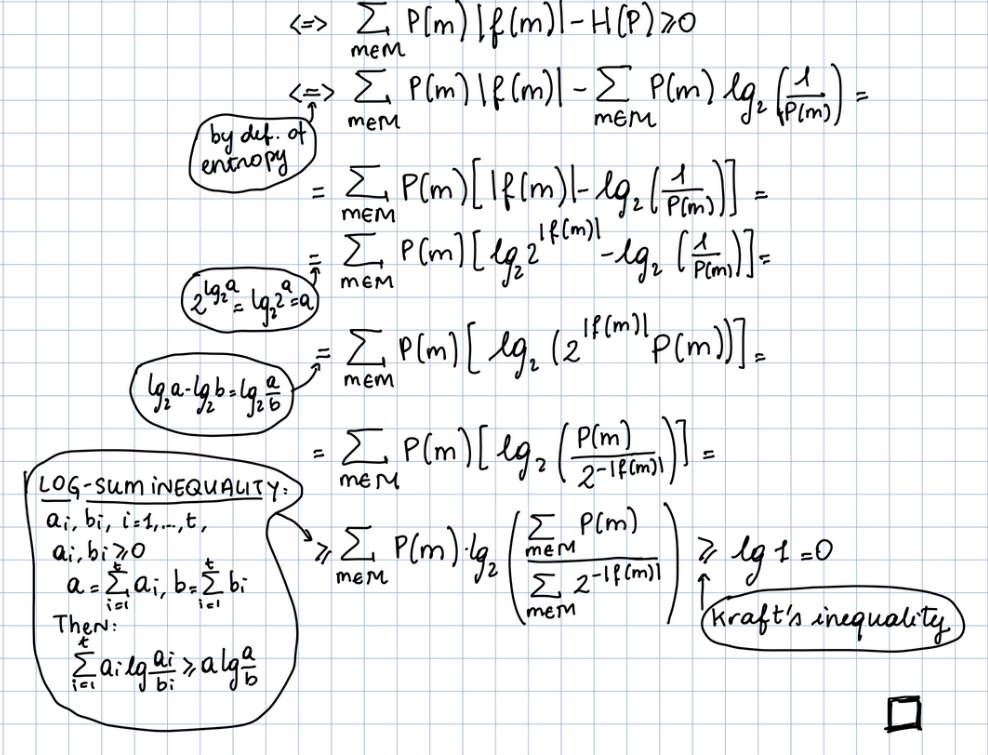 <=> ∑_{m∈M} P(m)|f(m)| - H(P) ⩾ 0
<=> ∑_{m∈M} P(m)|f(m)| - ∑_{m∈M} P(m) lg₂(1/P(m)) =
by def. of
entropy
= ∑_{m∈M} P(m)[|f(m)| - lg₂(1/P(m))] =
= ∑_{m∈M} P(m)[lg₂2^{|f(m)|} - lg₂(1/P(m))] =
2^{lg₂a} = lg₂2^a = a
= ∑_{m∈M} P(m)[lg₂(2^{|f(m)|} P(m))] =
lg₂a - lg₂b = lg₂ a/b
= ∑_{m∈M} P(m)[lg₂(P(m)/2^{-|f(m)|})] =
LOG-SUM INEQUALITY:
ai, bi, i=1,...,t,
ai, bi ⩾ 0
a = ∑_{i=1}^{t} ai, b = ∑_{i=1}^{t} bi
Then:
∑_{i=1}^{t} ai lg ai/bi ⩾ a lg a/b
⩾ ∑_{m∈M} P(m)·lg₂(∑_{m∈M} P(m) / ∑_{m∈M} 2^{-|f(m)|}) ⩾ lg 1 = 0
Kraft's inequality
□